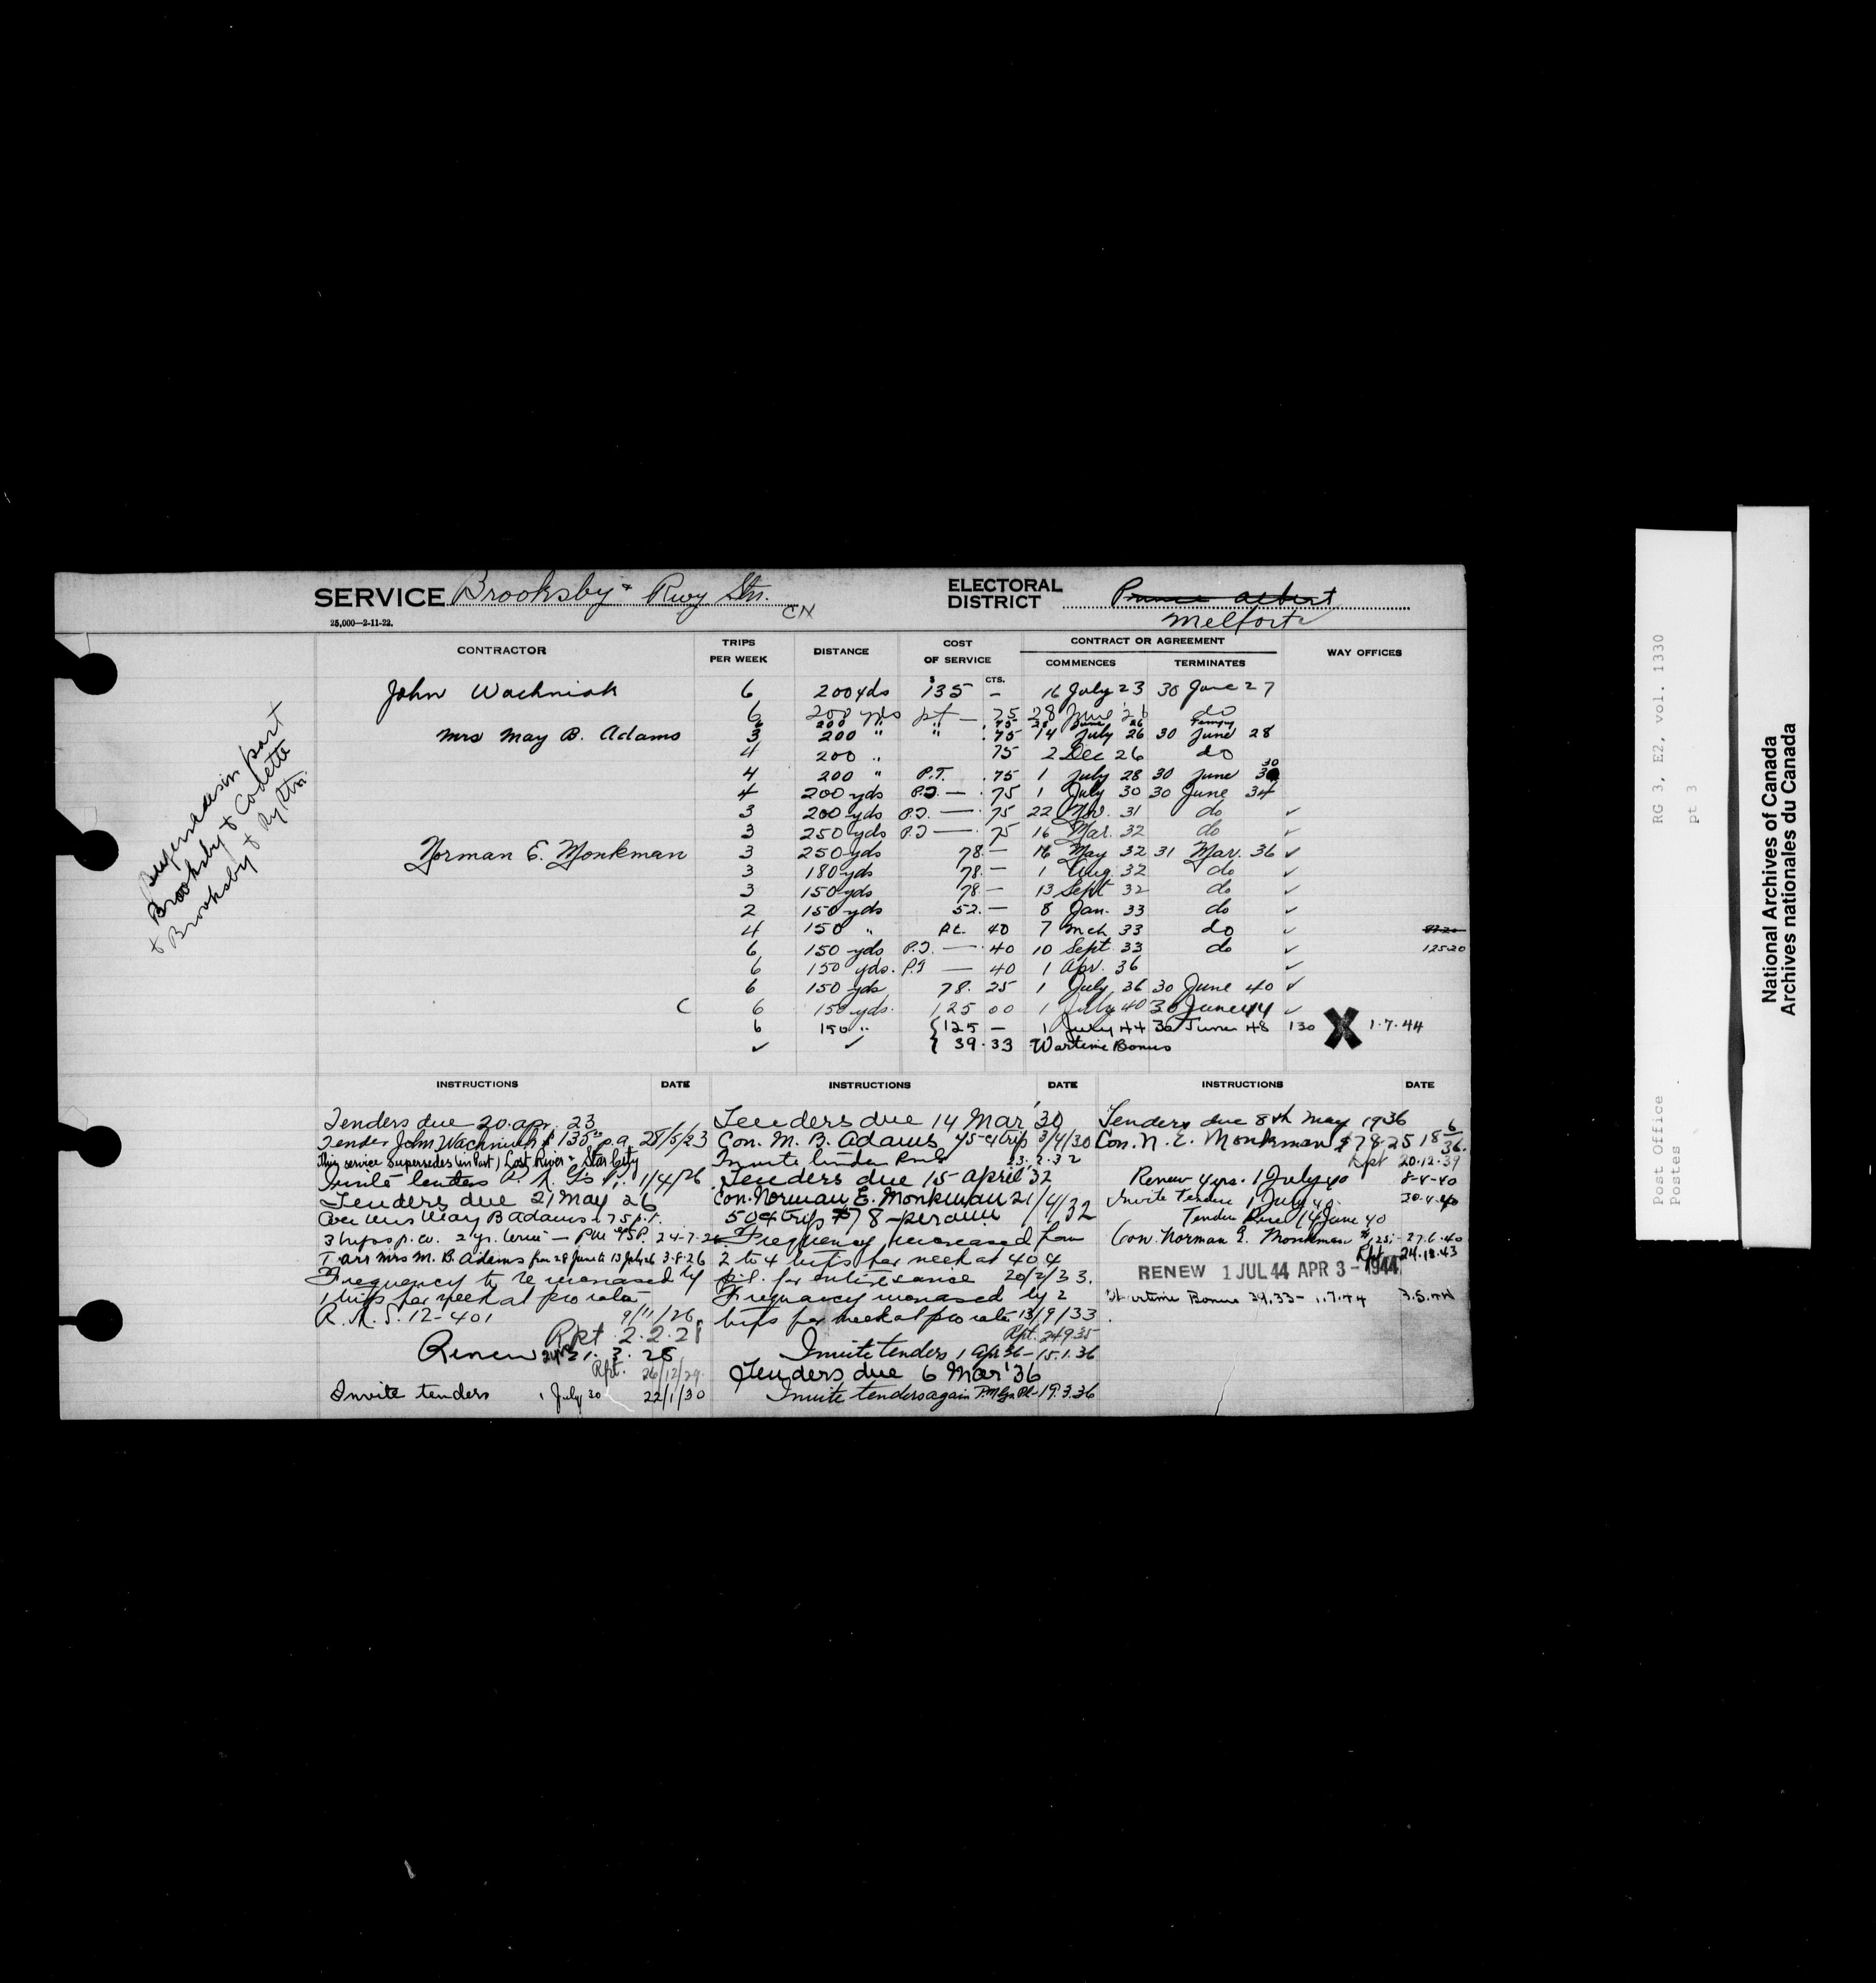 SERVICE Brooksby & Rwy Stn. CN
25,000—2-11-22.
ELECTORAL DISTRICT Prince Albert
Melfort
CONTRACTOR TRIPS PER WEEK DISTANCE COST OF SERVICE CONTRACT OR AGREEMENT WAY OFFICES
$ CTS. COMMENCES TERMINATES
John Wachniak 6 200 yds 135 — 16 July 23 30 June 27
6 200 yds pt — 75 28 June 26 do
Mrs May B. Adams 3 200 " " .75 14 July 26 30 June 28
4 200 " 75 2 Dec 26 do
4 200 " P.T. .75 1 July 28 30 June 30
4 200 yds P.T. — .75 1 July 30 30 June 34
3 200 yds P.T. — .75 22 Nov. 31 do ✓
3 250 yds P.T — .75 16 Mar. 32 do ✓
Norman E. Monkman 3 250 yds 78.— 16 May 32 31 Mar. 36 ✓
3 180 yds 78.— 1 Aug. 32 do ✓
3 150 yds 78 — 13 Sept 32 do ✓
2 150 yds 52.— 8 Jan. 33 do ✓
4 150 " 40 7 Mch 33 do ✓
6 150 yds P.T. — .40 10 Sept. 33 do ✓ 125.20
6 150 yds. P.T — 40 1 Apr. 36 ✓
6 150 yds 78. 25 1 July 36 30 June 40 ✓
C 6 150 yds. 125 00 1 July 40 30 June 44 ✓
6 150 " { 125 — 1 July 44 30 June 48 130 X 1.7.44
✓ ✓ { 39.33 Wartime Bonus
Supersedes in part
& Brooksby & Codette
& Brooksby & Ry Stn.
INSTRUCTIONS DATE
Tenders due 20 apr. 23
Tender John Wachniak $135 p.a. 28/5/23
This service supersedes (in Part) Lost River & Star City
Invite tenders 1/4/26
Tenders due 21 May 26
Mrs May B Adams .75 p.t.
3 trips p.w. 2 yr. term — 24-7-26
T arr Mrs M. B. Adams from 28 June to 13 July 26 3-8-26
Frequency to be increased by
1 trip per week at pro rata
R.M.S. 12-401 9/11/26
Rpt 2.2.28
Renew 2 yrs 21.3.28
Rpt. 26/12/29
Invite tenders 1 July 30 22/1/30
INSTRUCTIONS DATE
Tenders due 14 Mar '30
Con. M. B. Adams 75 ct trip 3/4/30
Invite tenders 23.2.32
Tenders due 15 April '32
Con. Norman E. Monkman 21/4/32
50¢ trip $78 — per ann
Frequency increased from
2 to 4 trips per week at 40¢
20/2/33.
Frequency increased by 2
trips per week at pro rata 13/9/33
Rpt. 24.9.35
Invite tenders 1 Apr 36 – 15.1.36
Tenders due 6 Mar '36
Invite tenders again 19.3.36
INSTRUCTIONS DATE
Tenders due 8th May 1936
Con. N. E. Monkman $78.25 18 6/36.
Rpt 20.12.39
Renew 4 yrs. 1 July 40 8-4-40
Invite Tenders 1 July 40. 30.4.40
Tender Due 14 June 40
Con. Norman E. Monkman $125. 27.6.40
Rpt 24.12.43
RENEW 1 JUL 44 APR 3 - 1944
Wartime Bonus 39.33 - 1.7.44 3.5.44
RG 3, E2, vol. 1330
pt 3
Post Office
Postes
National Archives of Canada
Archives nationales du Canada